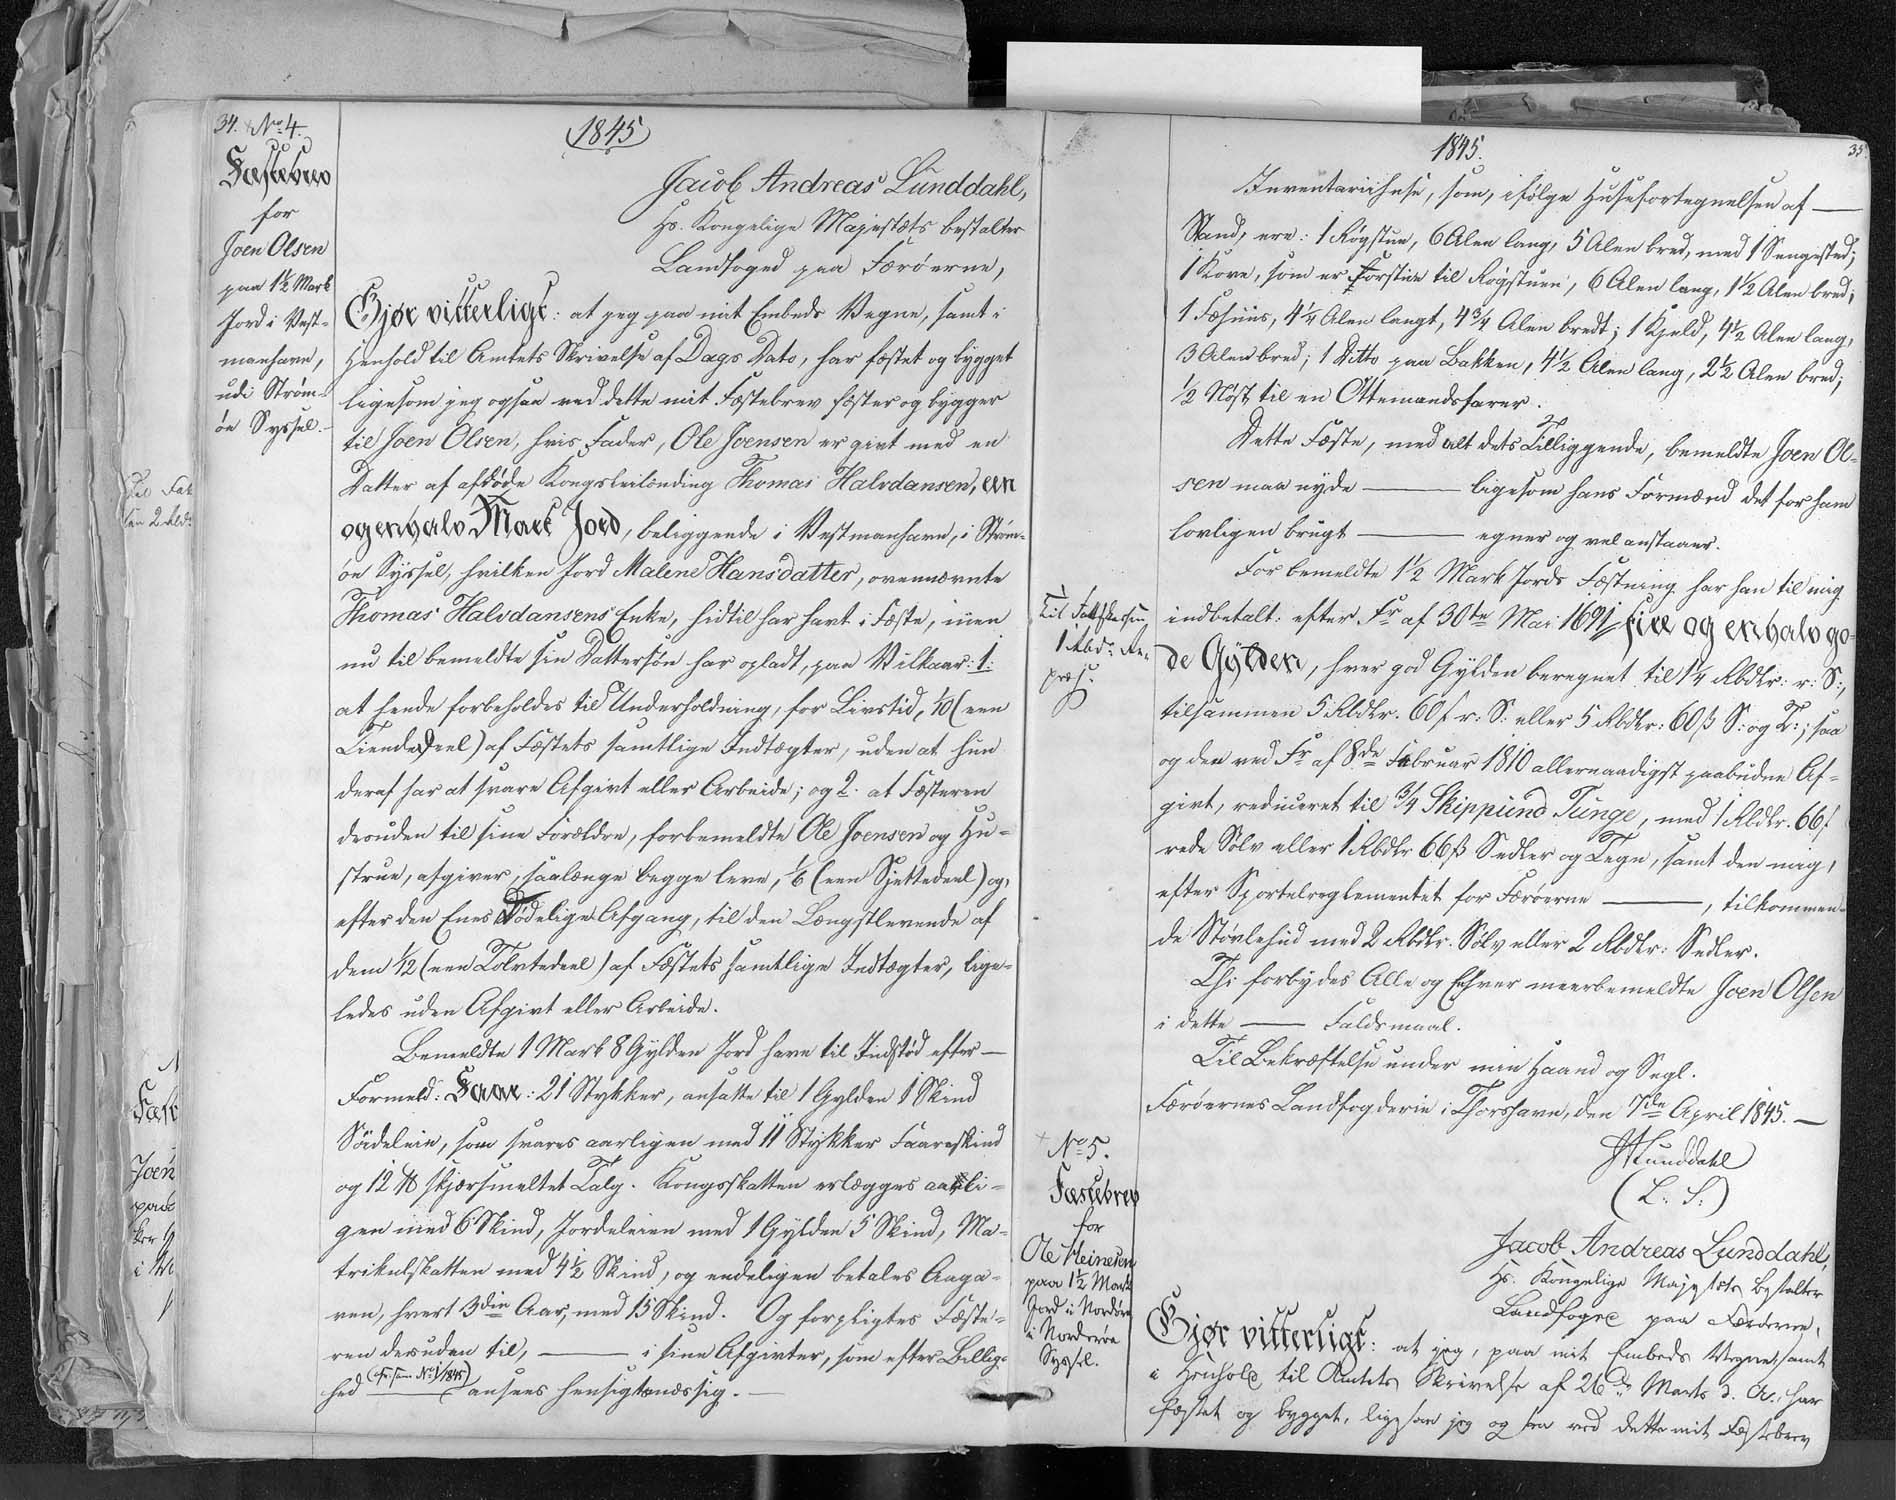 34. No 4.
Fæstebrev
for
Joen Olsen
paa 1½ Mark
Jord i Vest-
manhavn,
udi Strøm-
øe Syssel.
1845
Jacob Andreas Lunddahl,
Hs. Kongelige Majestæts bestalter
Landfoged paa Færøerne,
Gjør vitterligt: at jeg paa mit Embeds Vegne, samt i
Henhold til Amtets Skrivelse af Dags Dato, har fæstet og bygget
ligesom jeg ogsaa ved dette mit Fæstebrev fæster og bygger
til Joen Olsen, hvis Fader, Ole Joensen er givt med en
Datter af afdøde Kongsleilænding Thomas Halvdansen, een
og en halv Mark Jord, beliggende i Vestmanhavn, i Strøm-
øe Syssel, hvilken Jord Malene Hansdatter, ovennævnte
Thomas Halvdansens Enke, hidtil har havt i Fæste, men
nu til bemeldte sin Dattersøn har opladt, paa Vilkaar: 1:
at hende forbeholdes til Underholdning, for Livstid, 1/10 (een
Tiende Deel) af Fæstets samtlige Indtægter, uden at hun
deraf har at svare Afgivt eller Arbeide; og 2. at Fæsteren
desuden til sine Forældre, forbemeldte Ole Joensen og Hu-
strue, afgiver, saalænge begge leve, 1/6 (een Sjettedeel) og,
efter den Enes dødelige Afgang, til den Længstlevende af
dem 1/12 (een Tolvtedeel) af Fæstets samtlige Indtægter, lige-
ledes uden Afgivt eller Arbeide.
Bemeldte 1 Mark 8 Gylden Jord have til Indstød efter —
Formeld: Faar: 21 Stykker, ansatte til 1 Gylden 1 Skind
Södeleie, som svares aarligen med 11 Stykker Faareskind
og 12 ℔ skjærsmeltet Talg. Kongsskatten erlægges aarli-
gen med 6 Skind, Jordeleien med 1 Gylden 5 Skind, Ma-
trikulskatten med 4½ Skind, og endeligen betales Aaga-
ven, hvert 3die Aar, med 15 Skind. Og forpligtes Fæste-
ren desuden til, — i sine Afgivter, som efter Billig-
hed (cfr. No 1/1845) ansees hensigtsmæssig. —
1845.
35.
Inventariihuse, som, ifølge Husefortegnelsen af —
Stand, ere: 1 Røgstue, 6 Alen lang, 5 Alen bred, med 1 Sengested;
1 Kove, som er Forstue til Røgstuen, 6 Alen lang, 1½ Alen bred;
1 Fæhuus, 4¼ Alen langt, 4¾ Alen bredt; 1 Kjeld, 4½ Alen lang,
3 Alen bred; 1 Ditto paa Bakken, 4½ Alen lang, 2½ Alen bred;
½ Nøst til en Ottemandsfarer.
Dette Fæste, med alt dets Tilliggende, bemeldte Joen Ol-
sen maa nyde — ligesom hans Formænd det for ham
lovligen brugt — egner og vel anstaaer.
For bemeldte 1½ Mark Jords Fæstning har han til mig
indbetalt: efter Fr af 30te Mai 1691, fire og en halv go-
de Gylden, hver god Gylden beregnet til 1¼ Rbdlr: r: S:,
tilsammen 5 Rbdlr. 60 f r: S: eller 5 Rbdlr: 60 ß S: og T:; saa
og den ved Fr af 8de Februar 1810 allernaadigst paabudne Af-
givt, reduceret til ¾ Skippund Tunge, med 1 Rbdlr. 66 f
rede Sølv eller 1 Rbdlr 66 ß Sedler og Tegn, samt den mig,
efter Sportelreglementet for Færøerne —, tilkommen-
de Støvlehud med 2 Rbdlr. Sølv eller 2 Rbdlr: Sedler.
Thi forbydes Alle og Enhver meerbemeldte Joen Olsen
i dette — Faldsmaal.
Til Bekræftelse under min Haand og Segl.
Færøernes Landfogderie i Thorshavn, den 7de April 1845. —
Lunddahl
(L. S.)
No 5.
Fæstebrev
for
Ole Heinesen
paa 1½ Mark
Jord i Nordøre
i Norderøe
Syssel.
Jacob Andreas Lunddahl,
Hs. Kongelige Majestæts bestalter
Landfoged paa Færøerne,
Gjør vitterligt: at jeg, paa mit Embeds Vegne, samt
i Henhold til Amtets Skrivelse af 26de Marts d. A., har
fæstet og bygget, ligesom jeg og saa ved dette mit Fæstebrev